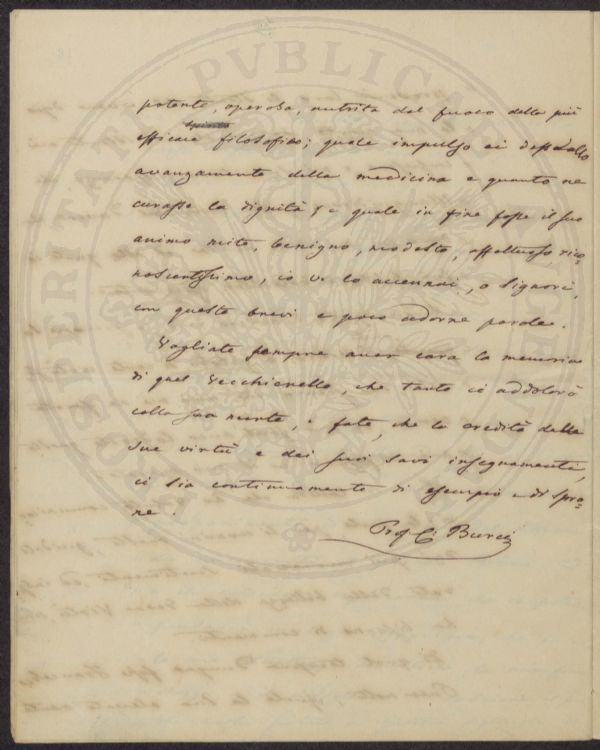 potente, operosa, nutrita dal fuoco della più
efficace filosofia; quale impulso ei desse allo
avanzamento della medicina e quanto ne
curasse la dignità; e quale in fine fosse il suo
animo mite, benigno, modesto, affettuoso rico=
noscentissimo, io ve lo accennai, o Signori,
con queste brevi e poco adorne parole.
Vogliate sempre aver cara la memoria
di quel Vecchierello, che tanto ci addolorò
colla sua morte, e fate, che la eredità delle
sue virtù e dei suoi savi insegnamenti,
ci sia continuamente di esempio e di spro=
ne.
Prof. C. Burci